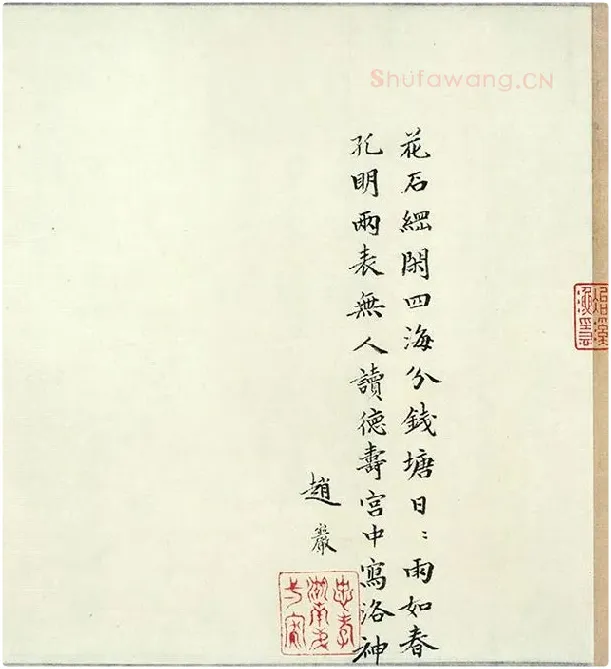 Shufawang.CN
花石綱閑四海分錢塘日〻雨如春
孔明兩表無人讀德壽宮中寫洛神
趙巖